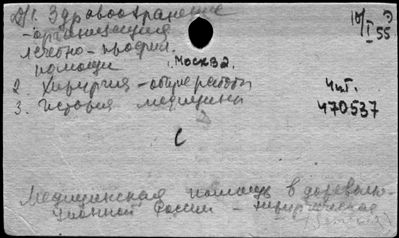 1. Здравоохранение
- организация
лечебно - профил.
помощи
Москва.
2. Хирургия - общие работы
3. История медицины
10/I 55
Ч.Г.
470537
С
Медицинская помощь в дореволю-
ционной России - хирургическая